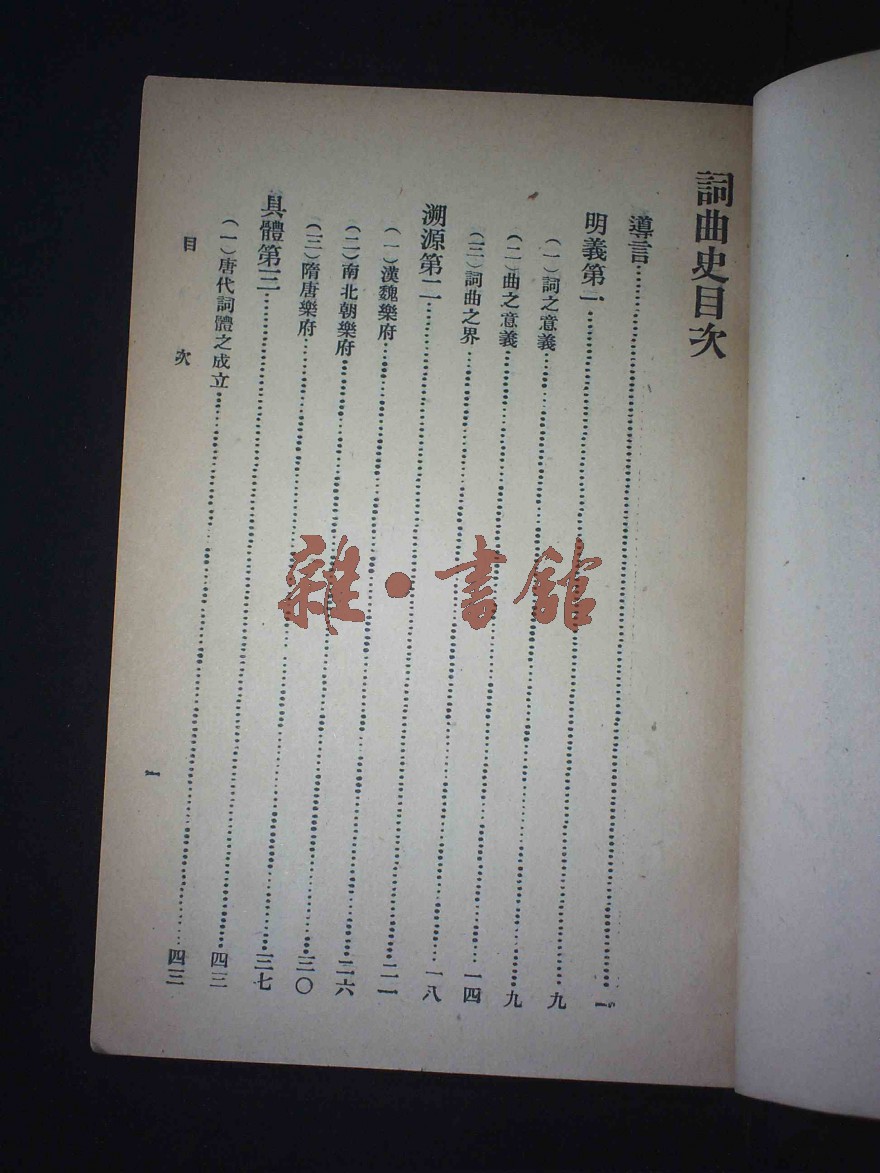 詞曲史目次
導言……一
明義第一……九
（一）詞之意義……九
（二）曲之意義……一四
（三）詞曲之界……一八
溯源第二……二一
（一）漢魏樂府……二六
（二）南北朝樂府……三〇
（三）隋唐樂府……三七
具體第三……四三
（一）唐代詞體之成立……四三
目次
一
雜·書館